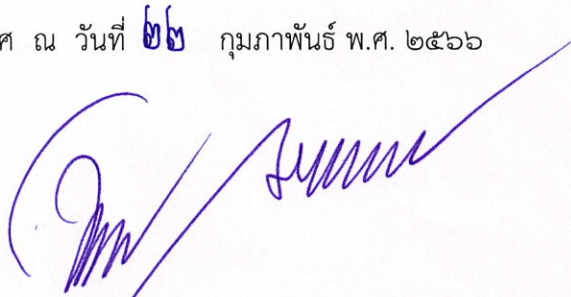 ศ ณ วันที่ ๒๒ กุมภาพันธ์ พ.ศ. ๒๕๖๖